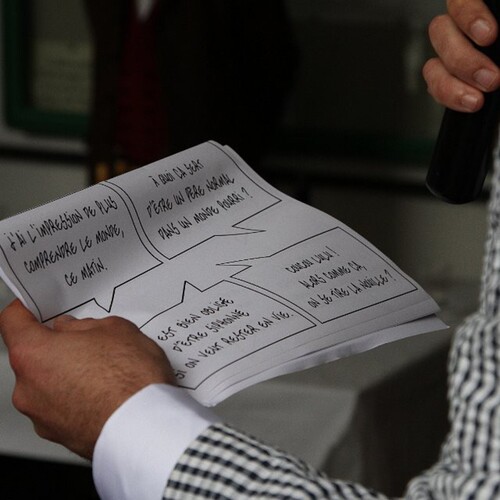 J'AI L'IMPRESSION DE PLUS
COMPRENDRE LE MONDE,
CE MATIN.
À QUOI ÇA SERT
D'ÊTRE UN PÈRE NORMAL
DANS UN MONDE POURRI ?
COUCOU LULU !
ALORS COMME ÇA
ON SE TIRE LA NOUILLE ?
EST BIEN OBLIGÉ
D'ÊTRE
SI ON VEUT RESTER EN VIE.